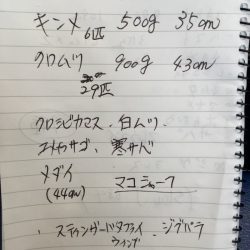 キンメ 6匹 500g 35cm
クロムツ 900g 43cm
29匹
クロシビカマス、白ムツ
ユメカサゴ、寒サバ
メダイ マコシャーク
(44cm)
スティングガードタフライ ジグパラ
ウィング